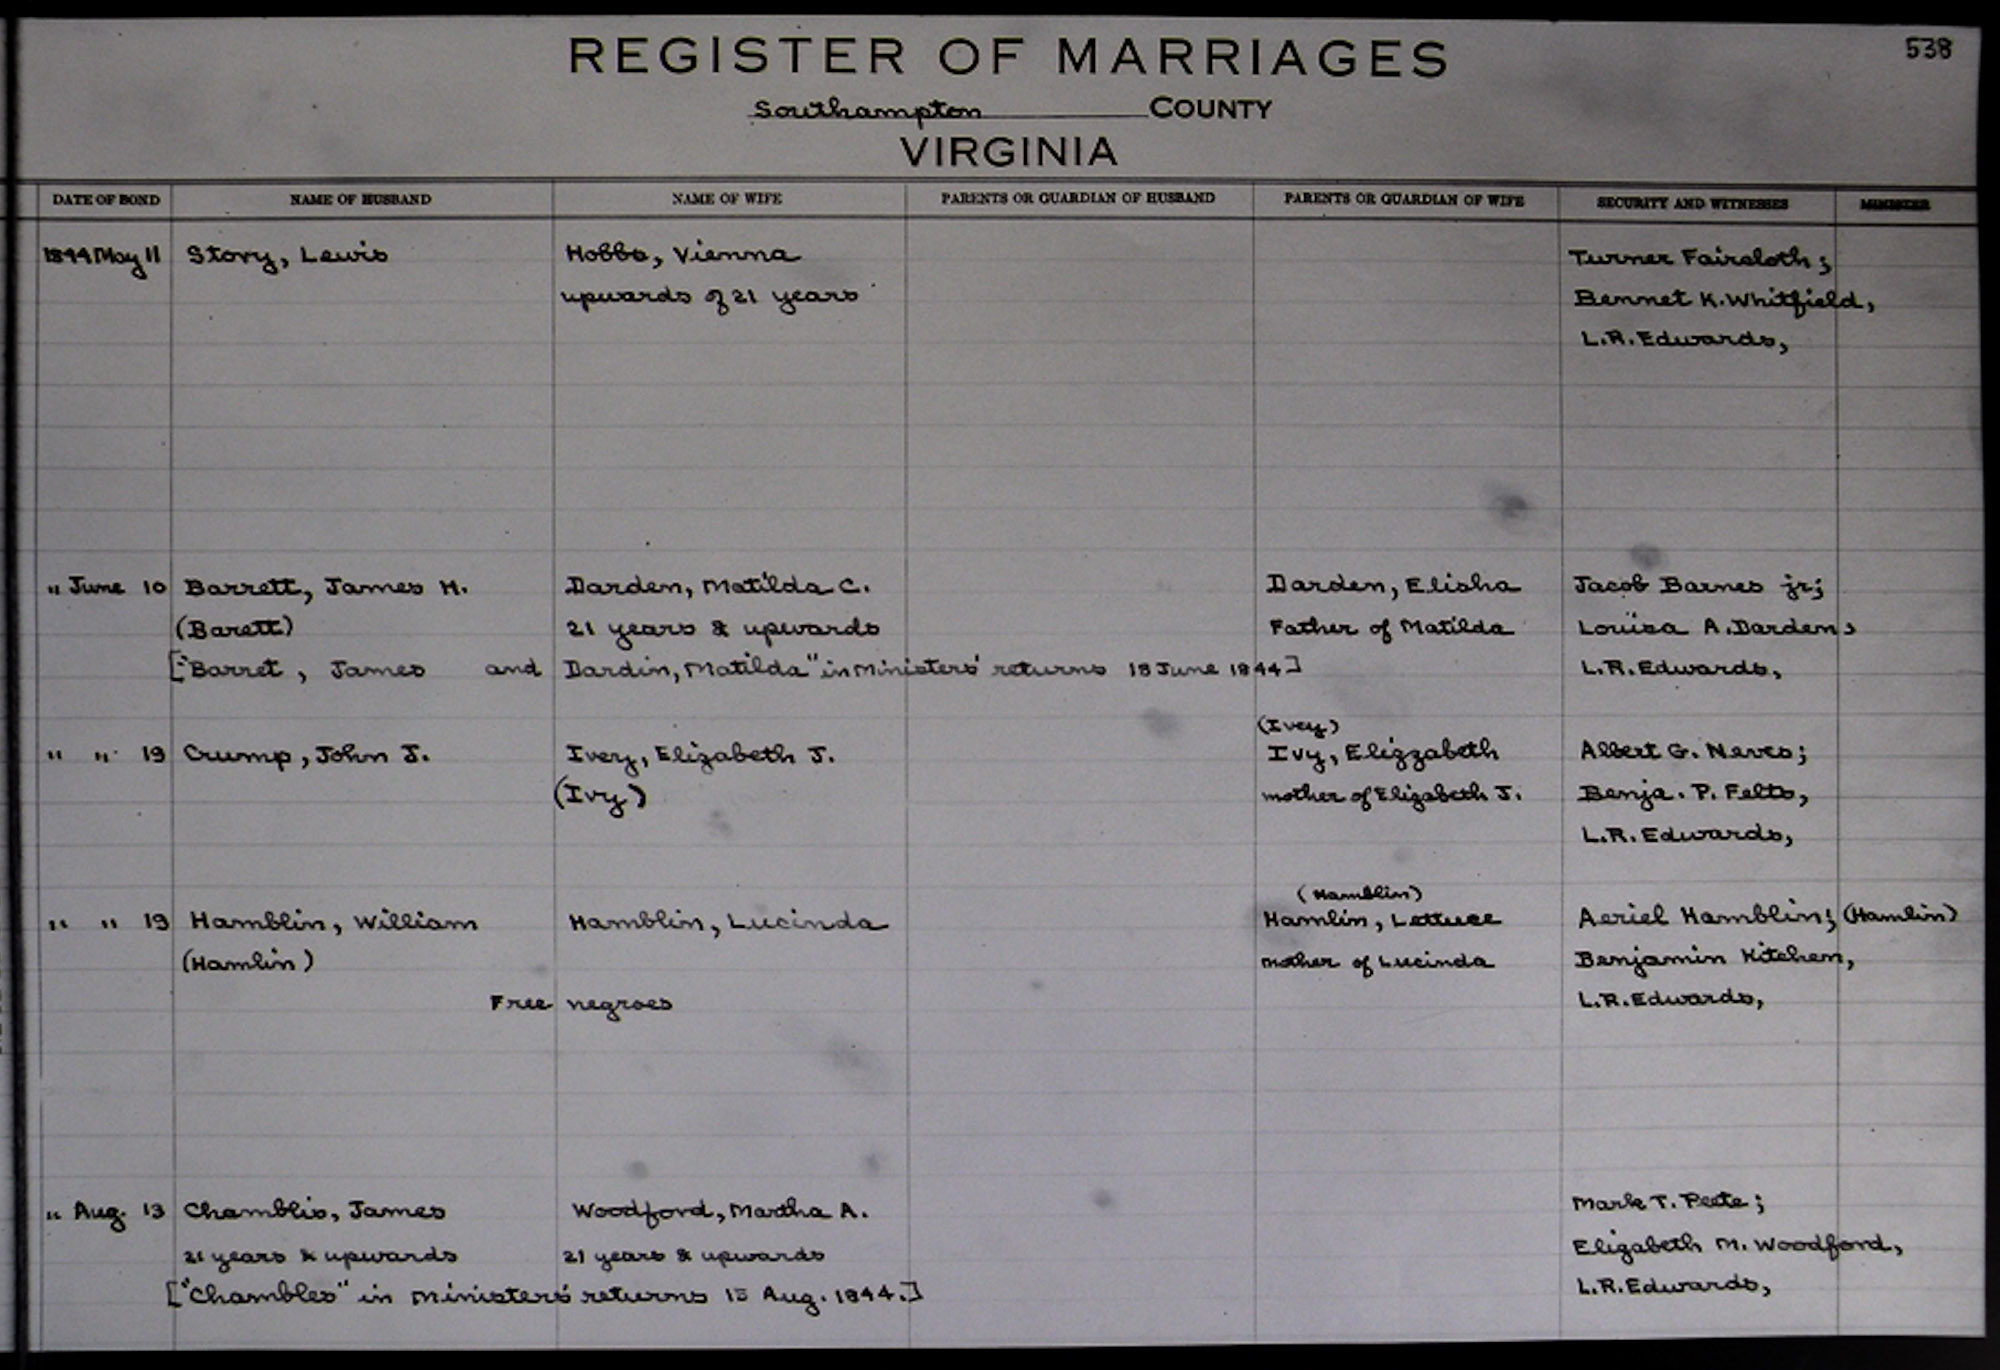 538
REGISTER OF MARRIAGES
Southampton COUNTY
VIRGINIA
DATE OF BOND NAME OF HUSBAND NAME OF WIFE PARENTS OR GUARDIAN OF HUSBAND PARENTS OR GUARDIAN OF WIFE SECURITY AND WITNESSES MINISTER
1844 May 11 Story, Lewis Hobbs, Vienna Turner Faircloth;
upwards of 21 years Bennet K. Whitfield,
L.R. Edwards,
" June 10 Barrett, James H. Darden, Matilda C. Darden, Elisha Jacob Barnes jr;
(Barett) 21 years & upwards Father of Matilda Louisa A. Darden,
["Barret, James and Dardin, Matilda" in Ministers' returns 18 June 1844] L.R. Edwards,
(Ivey)
" " 19 Crump, John J. Ivey, Elizabeth J. Ivy, Elizzabeth Albert G. Neves;
(Ivy) mother of Elizabeth J. Benja. P. Felts,
L.R. Edwards,
(Hamblin)
" " 19 Hamblin, William Hamblin, Lucinda Hamlin, Lettuce Aeriel Hamblin; (Hamlin)
(Hamlin) mother of Lucinda Benjamin Kitchen,
Free negroes L.R. Edwards,
" Aug. 13 Chamblis, James Woodford, Martha A. Mark T. Peete;
21 years & upwards 21 years & upwards Elizabeth M. Woodford,
["Chambles" in Ministers' returns Aug. 1844.] L.R. Edwards,